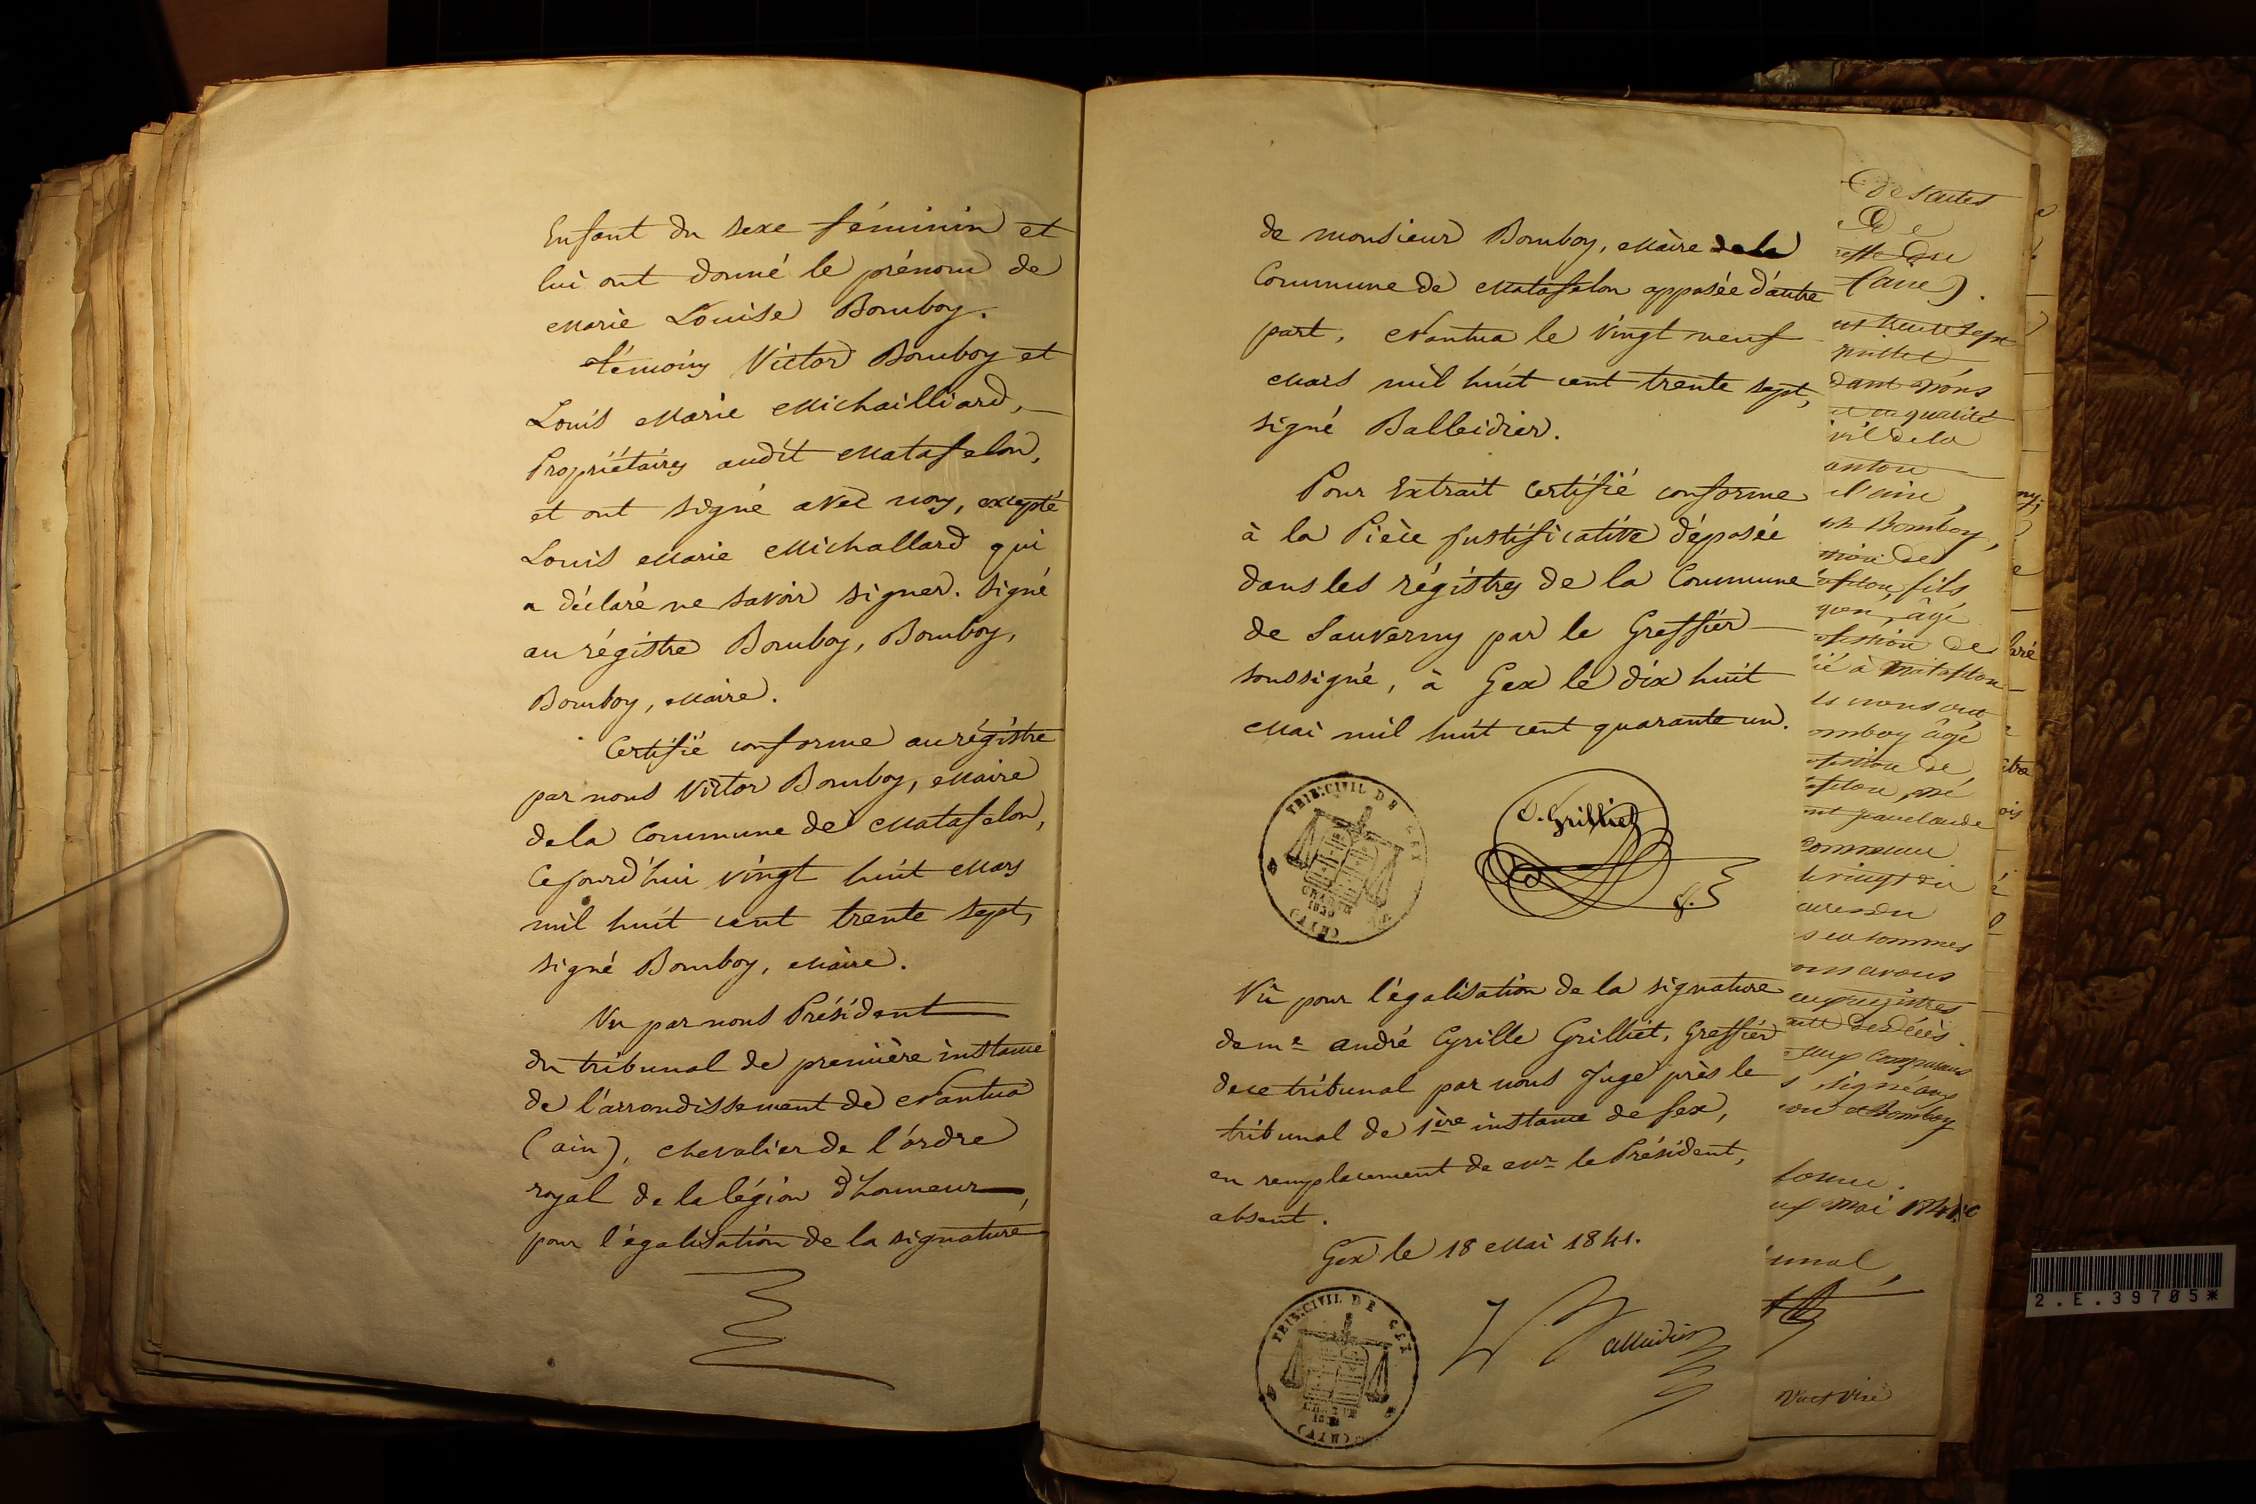 Enfant du sexe féminin et
lui ont donné le prénom de
Marie Louise Bomboy.
témoins Victor Bomboy et
Louis Marie Michailliard,
Propriétaires audit Matafelon,
et ont signé avec nous, excepté
Louis Marie Michallard qui
a déclaré ne savoir signer. Signé
au régistre Bomboy, Bomboy,
Bomboy, Maire.
Certifié conforme au régistre
par nous Victor Bomboy, Maire
de la Commune de Matafelon,
Cejourd'hui vingt huit Mars
mil huit cent trente sept,
signé Bomboy, Maire.
Vu par nous Président
du tribunal de première instance
de l'arrondissement de Nantua
(ain), Chevalier de l'ordre
royal de la légion d'honneur,
pour légalisation de la signature
de Monsieur Bomboy, Maire de la
Commune de Matafelon apposée d'autre
part, Nantua le vingt neuf
Mars mil huit cent trente sept,
signé Balleidier.
Pour Extrait Certifié conforme
à la Pièce justificative déposée
dans les régistres de la Commune
de Sauverny par le Greffier
soussigné, à Gex le dix huit
Mai mil huit cent quarante un.
TRIB. CIVIL DE GEX
CHARTE
1830
(AIN)
C. Grilliet
g.
Vû pour légalisation de la signature
de Me André Cyrille Grilliet, Greffier
de ce tribunal par nous Juge près le
tribunal de 1ère instance de Gex,
en remplacement de Mr le Président,
absent.
Gex le 18 Mai 1841.
TRIB. CIVIL DE GEX
CHARTE
1830
(AIN)
des actes
De
Du
dant nous
qualité
ivil de la
anton
Bomboy,
fils
âgé
de
à Matafelon
nous ont
omboy âgé
de
commune
le vingt dix
sommes
avons
registres
décès
comparans
signé avec
et Bomboy
mai 1841
unal,
Vu et visé
2.E.39705*